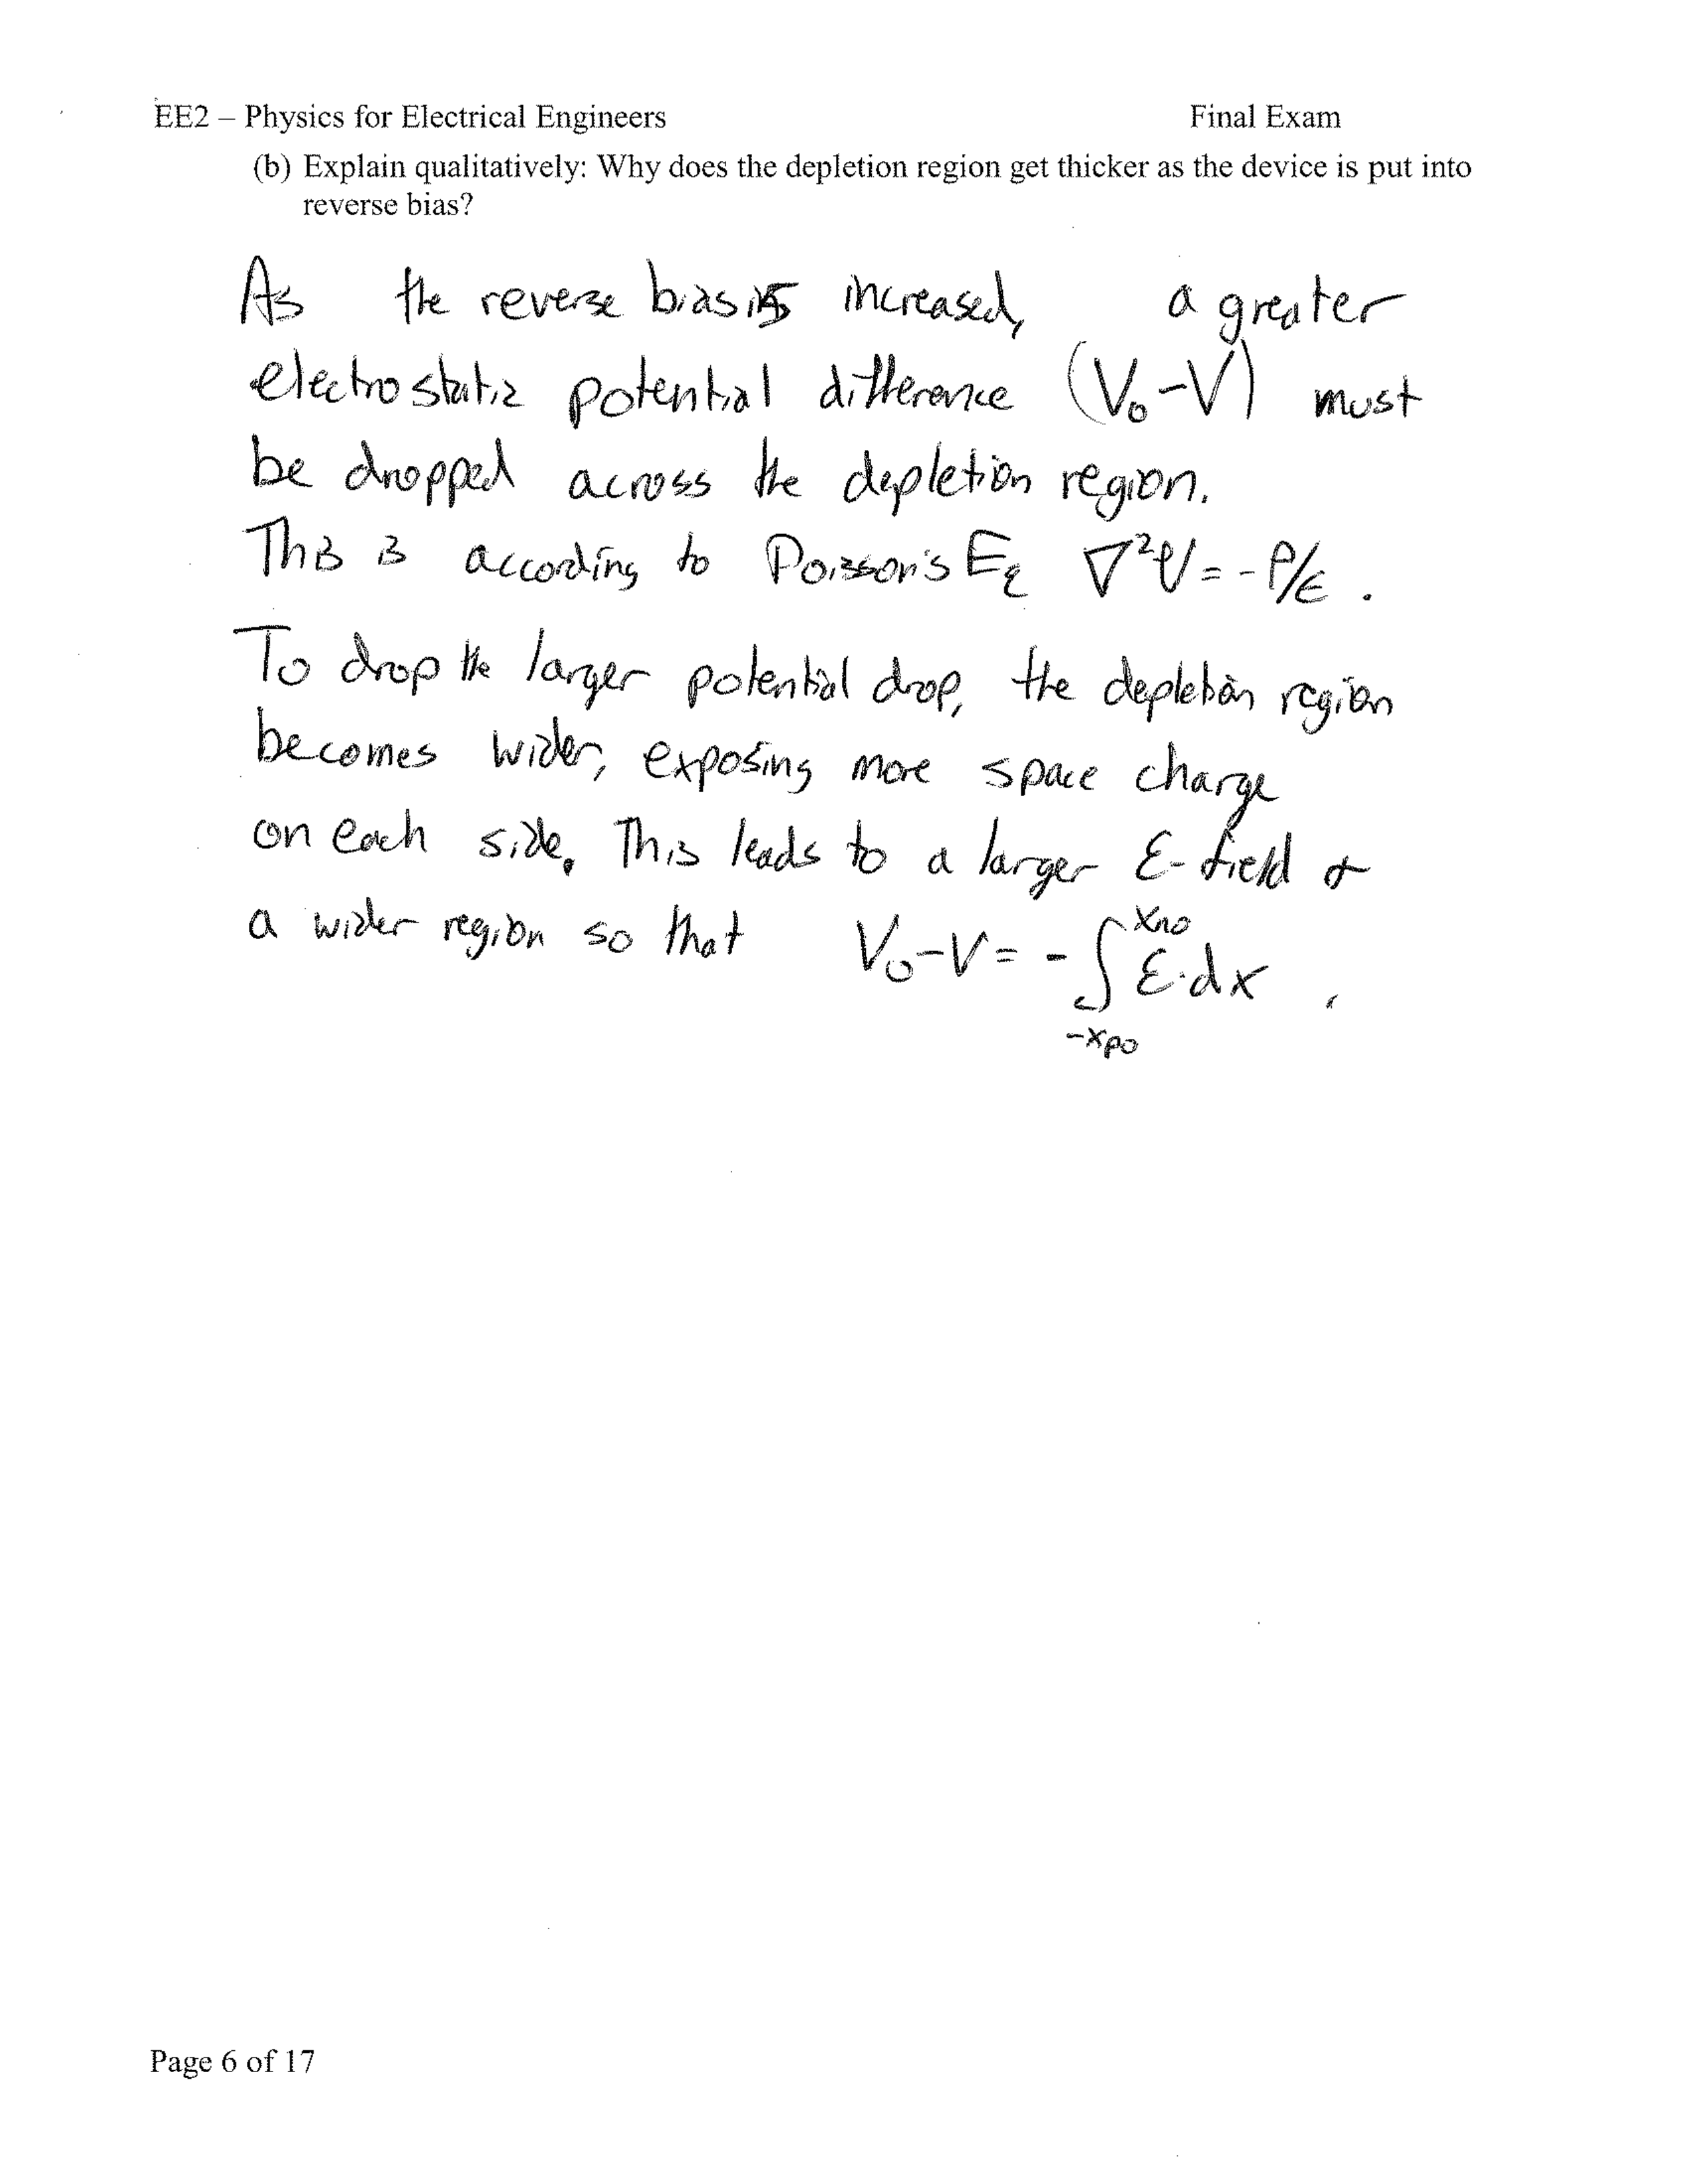 EE2 – Physics for Electrical Engineers Final Exam
(b) Explain qualitatively: Why does the depletion region get thicker as the device is put into
reverse bias?
As the reverse bias is increased, a greater
electrostatic potential difference (V₀-V) must
be dropped across the depletion region.
This is according to Poisson's Eq ∇²V = -ρ/ϵ .
To drop the larger potential drop, the depletion region
becomes wider, exposing more space charge
on each side. This leads to a larger ℰ-field +
a wider region so that V₀-V = -∫ ℰ·dx .
xno
-xpo
Page 6 of 17